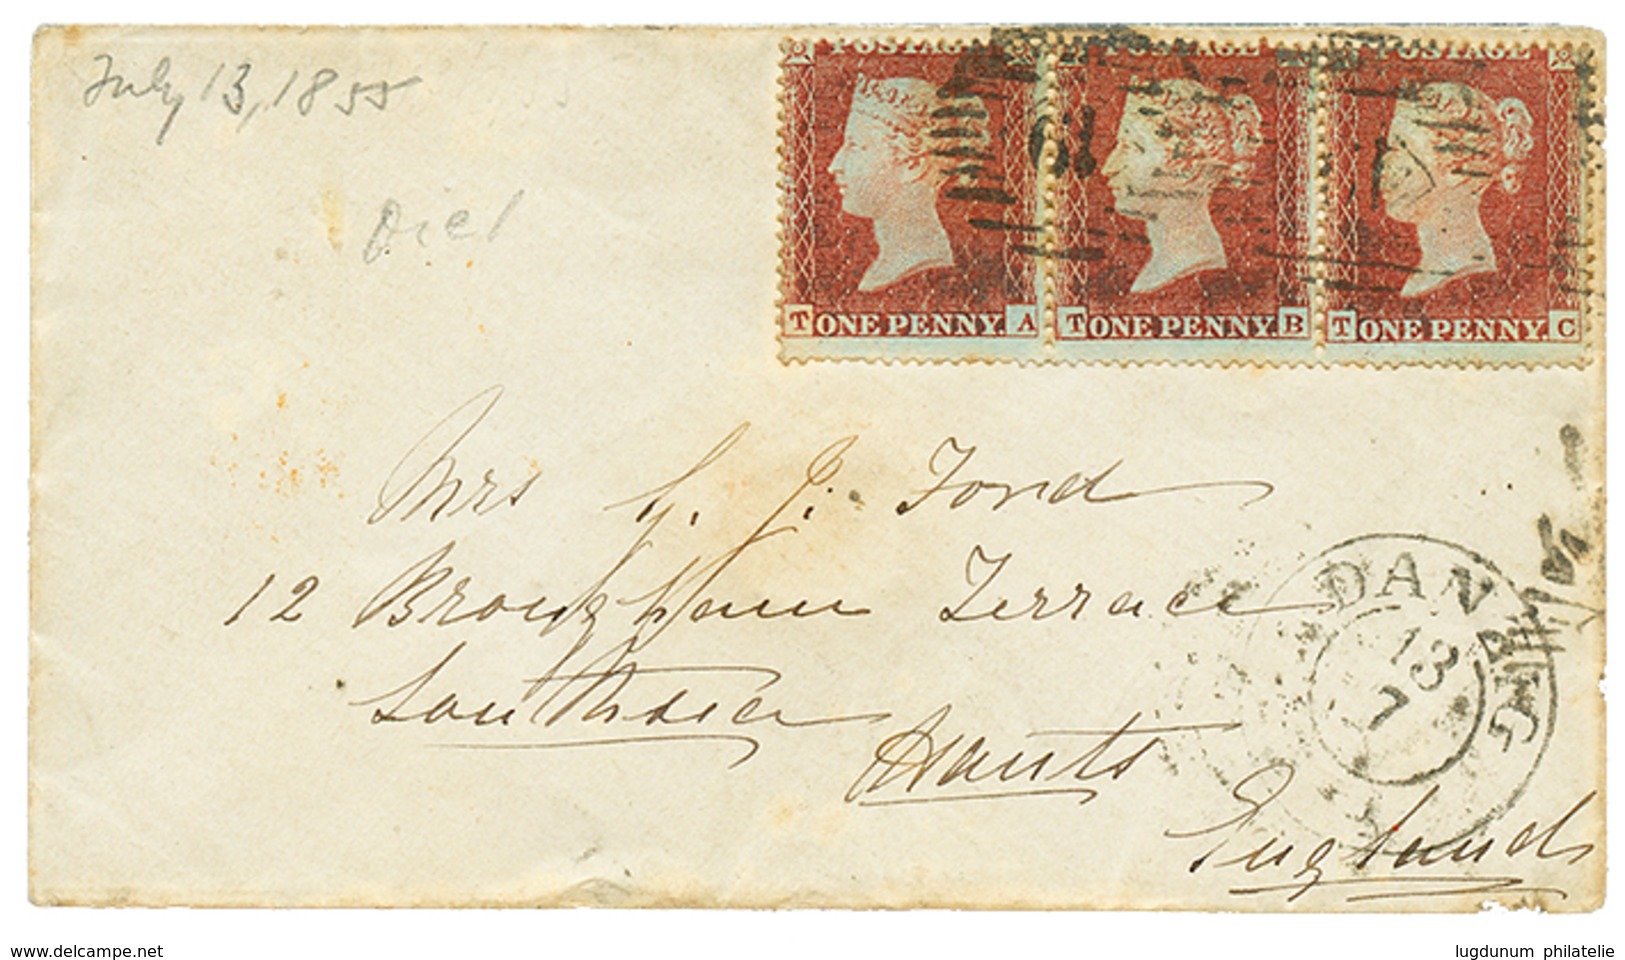 July 13, 1855
POSTAGE POSTAGE POSTAGE
19
T ONE PENNY. A T ONE PENNY. B T ONE PENNY. C
Mrs G. J. Ford
12 Brougham Terrace
Southsea
Hants
England
DAN
13
7
delcampe.net
lugdunum philatelie